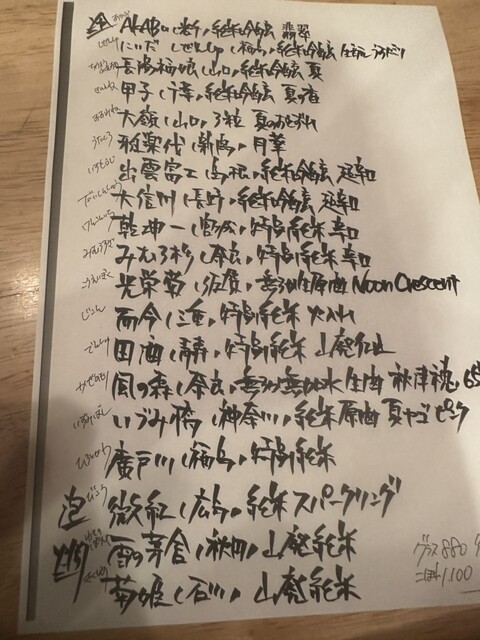 AKABU (岩手) 純米吟醸 翡翠
にいだしぜんしゅ (福島) 純米吟醸 生酛
長陽福娘 (山口) 純米吟醸 夏
甲子 (千葉) 純米吟醸 夏の香
大嶺 (山口) 3粒 夏のおとずれ
雅楽代 (新潟) 月華
出雲富士 (島根) 純米吟醸 超辛口
大信州 (長野) 純米吟醸 超辛口
乾坤一 (宮城) 特別純米 辛口
みむろ杉 (奈良) 特別純米 辛口
光栄菊 (佐賀) 無濾過生原酒 Noon Crescent
而今 (三重) 特別純米 火入れ
田酒 (青森) 特別純米 山廃仕込
風の森 (奈良) 無濾過無加水 生酒 秋津穂 65
いづみ橋 (神奈川) 純米原酒 夏ヤゴ ピンク
廣戸川 (福島) 特別純米
泡 微紅 (広島) 純米 スパークリング
燗 雪の茅舎 (秋田) 山廃純米
菊姫 (石川) 山廃純米
グラス 880
二合 1,100